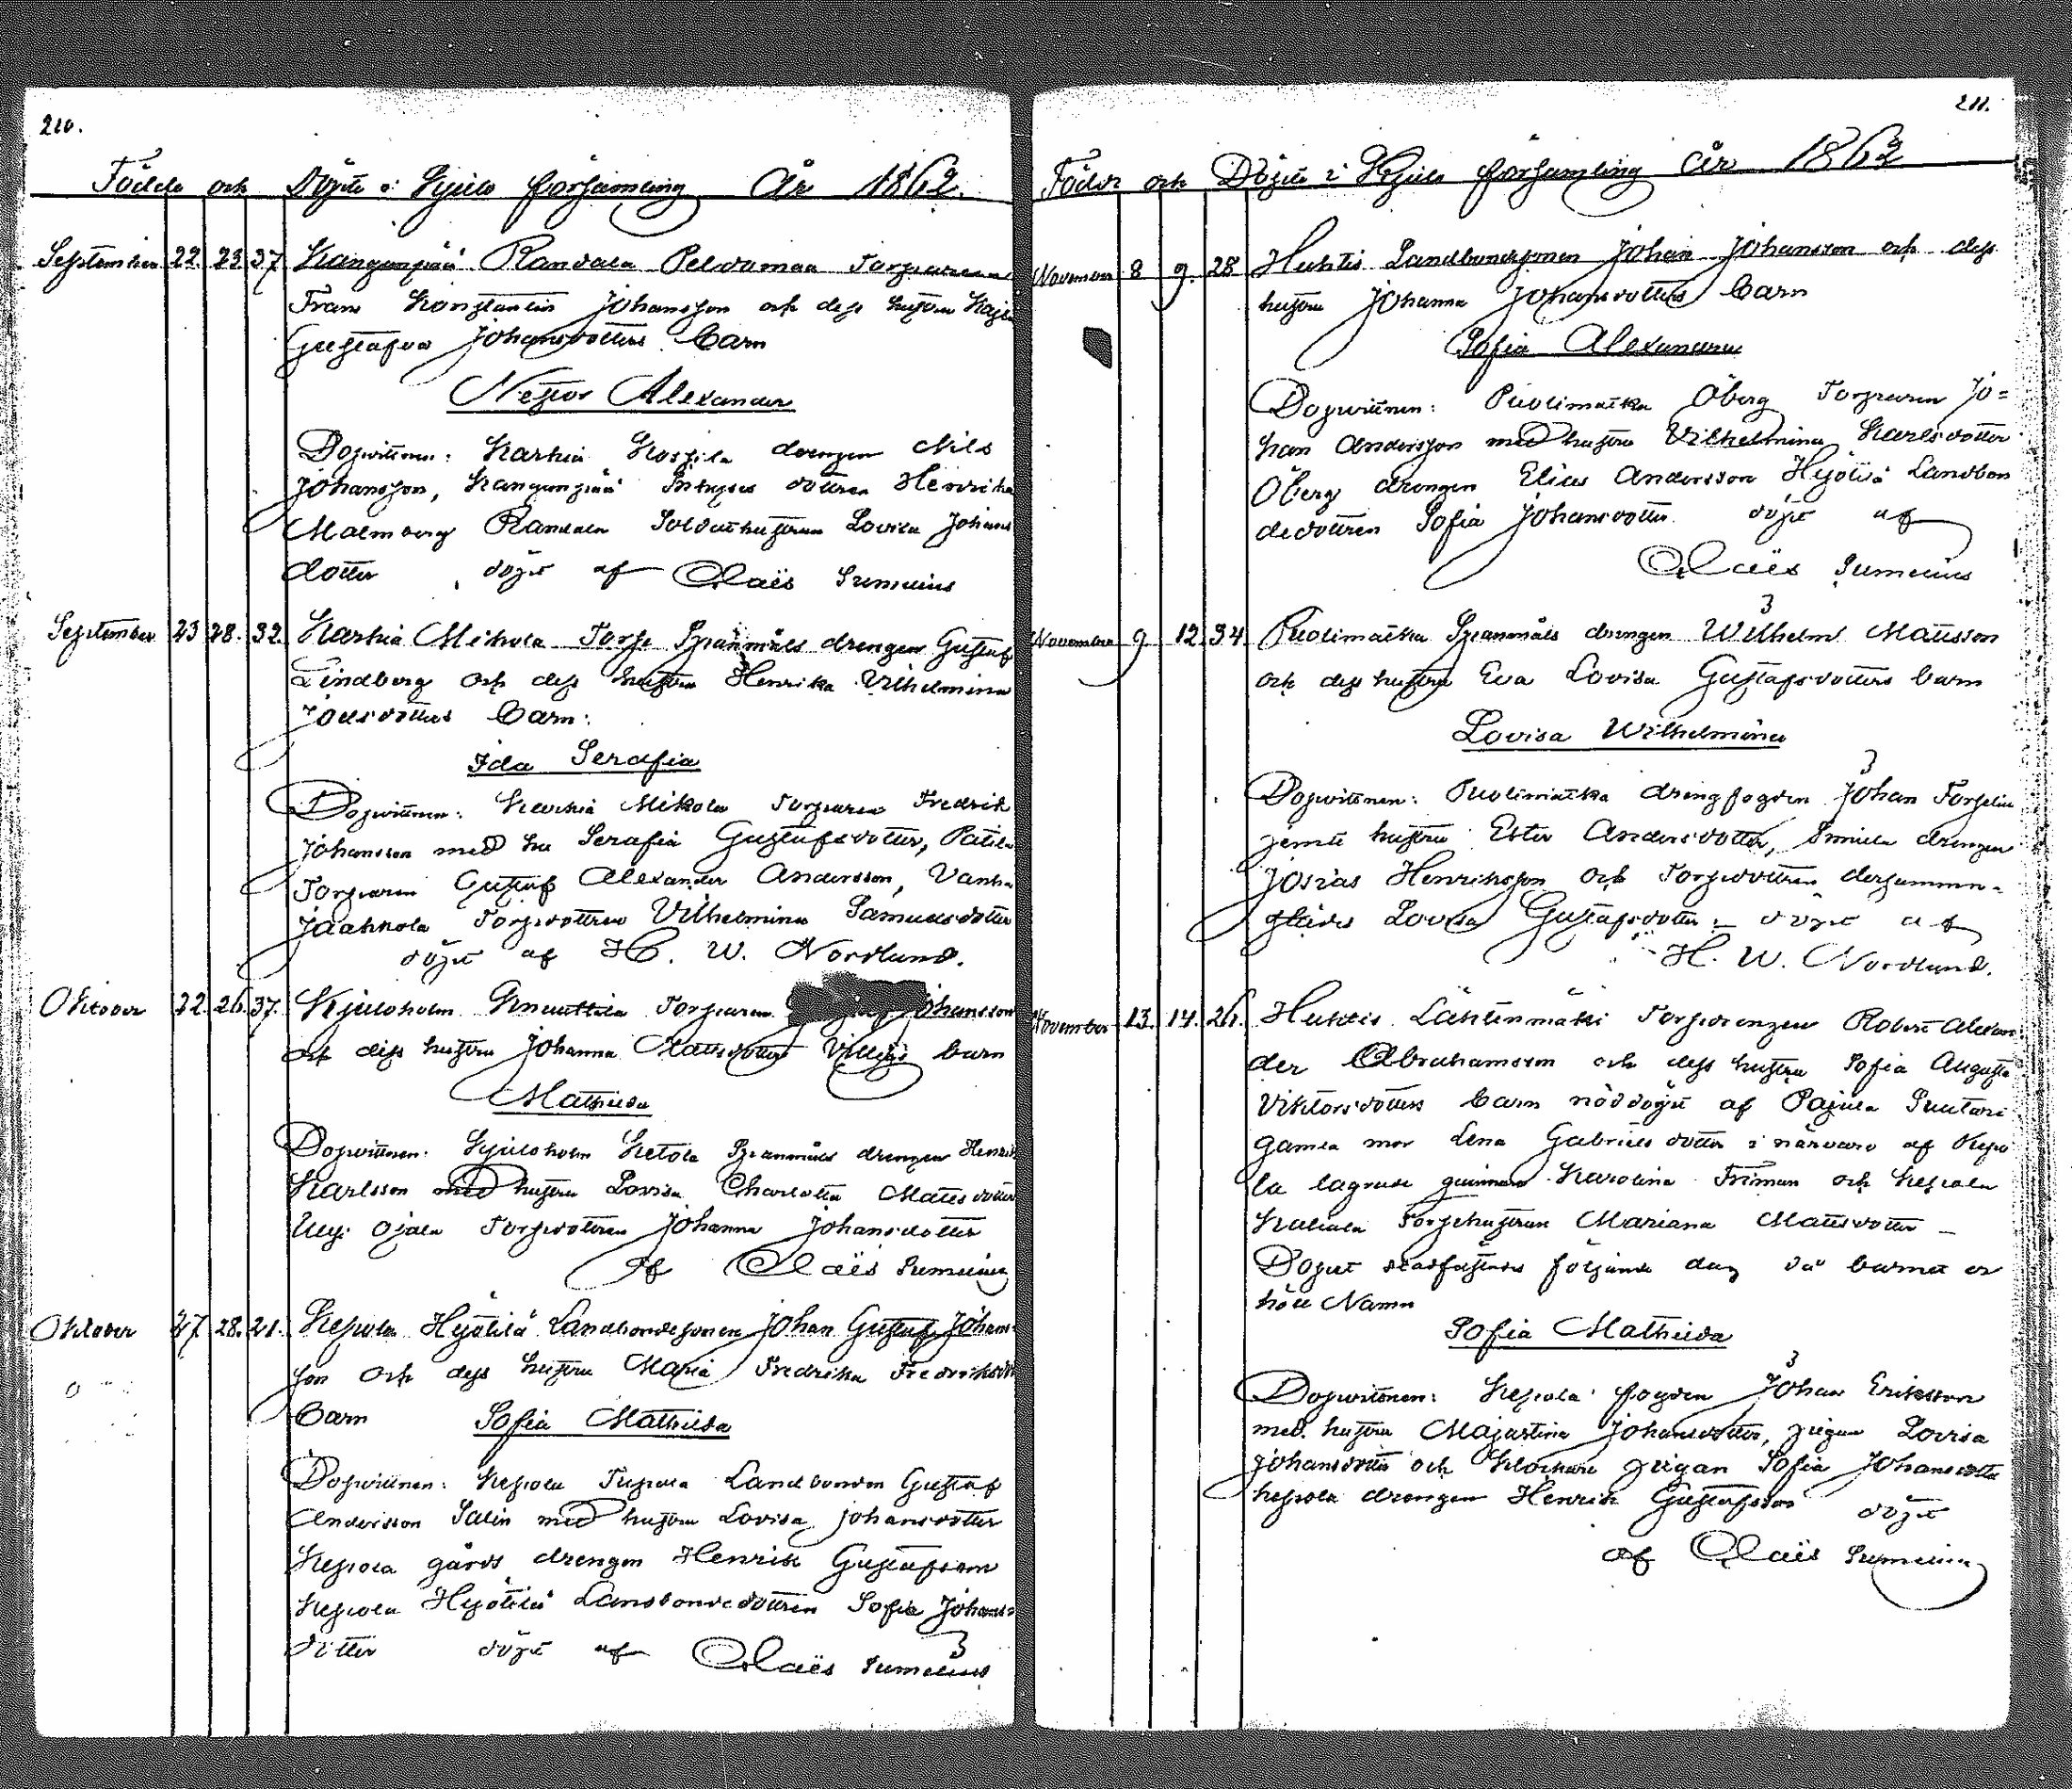 210.
Födde och Döpte i Kjulo församling År 1862.
September 22. 23 37 Kanganpää Randala Peldomaa Torparen
Frans Konstantin Johansson och dess hustru Kajsa
Gustafva Johansdotters barn
Nestor Alexander
Dopvittnen: Karhia Koskila drengen Nils
Johansson, Kanganpää dottren Henrika
Malmberg Randala Soldathustrun Lovisa Johans
dotter döpt af Claës Sumelius
September 23 28. 32. Karhia Mikola Torp Spanmåls drengen Gustaf
Lindberg och dess hustru Henrika Vilhelmina
Joelsdotters barn:
Ida Serafia
Dopvittnen: Karhia Mikola Torparen Fredrik
Johansson med hu Serafia Gustafsdotter,
Torparen Gustaf Alexander Andersson, Vanha
Jaakkola Torpdottren Vilhelmina Samuelsdotter
döpt af H. W. Nordlund.
Oktober 22. 26. 37. Kjuloholm Torparen Johansson
och dess hustru Johanna Mattsdotters barn
Mathilda
Dopvittnen: Kjuloholm Ketola Spanmåls drengen Henrik
Karlsson med hustru Lovisa Charlotta Mattsdotter
Ojala Torpdottren Johanna Johansdotter
af Claës Sumelius
Oktober 27. 28. 21. Kepola Hyötilä Landbondesonen Johan Gustaf Johans
son och dess hustru Maria Fredrika Fredriksd
barn Sofia Mathilda
Dopvittnen: Kepola Landbonden Gustaf
Andersson Salin med hustru Lovisa Johansdotter
Kepola gårds drengen Henrik Gustafsson
Kepola Hyötilä Landbondedottren Sofia Johans
dotter döpt af Claës Sumelius
211.
Födde och Döpte i Kjulo församling År 1862
November 8 9. 28 Huhtis Landbondesonen Johan Johansson och dess
hustru Johanna Johansdotters barn
Sofia Alexandra
Dopvittnen: Puolimatka Öberg Torparen Jo=
han Andersson med hustru Vilhelmina Karlsdotter
Öberg drengen Elias Andersson Hyötilä Landbon
dedottren Sofia Johansdotter döpt af
Claës Sumelius
November 9 12. 34. Puolimatka Spanmåls drengen Wilhelm Mattsson
och dess hustru Eva Lovisa Gustafsdotters barn
Lovisa Wilhelmina
Dopvittnen: Puolimatka drengfogden Johan
jemte hustru Ester Andersdotter, drengen
Josias Henriksson och Torpdottren dersamma-
städes Lovisa Gustafsdotter: döpt af
H. W. Nordlund.
November 13. 14. 26. Huhtis Lähtenmäki Torpdrengen Robert Alexan
der Abrahamsson och dess hustru Sofia Augusta
Viktorsdotters barn nöddöpt af Pajula Suutari
gamla mor Lena Gabrielsdotter i närvaro af Kepo
la lagrade quinnan Karolina Friman och Kepola
Torphustrun Mariana Mattsdotter -
Dopet stadfästades följande dag då barnet er
höll Namn
Sofia Mathilda
Dopvittnen: Kepola fogden Johan Eriksson
med hustru Majastina Johansdotter, pigan Lovisa
Johansdotter och Klockare pigan Sofia Johansdotter
Kepola drengen Henrik Gustafsson döpt
af Claës Sumelius